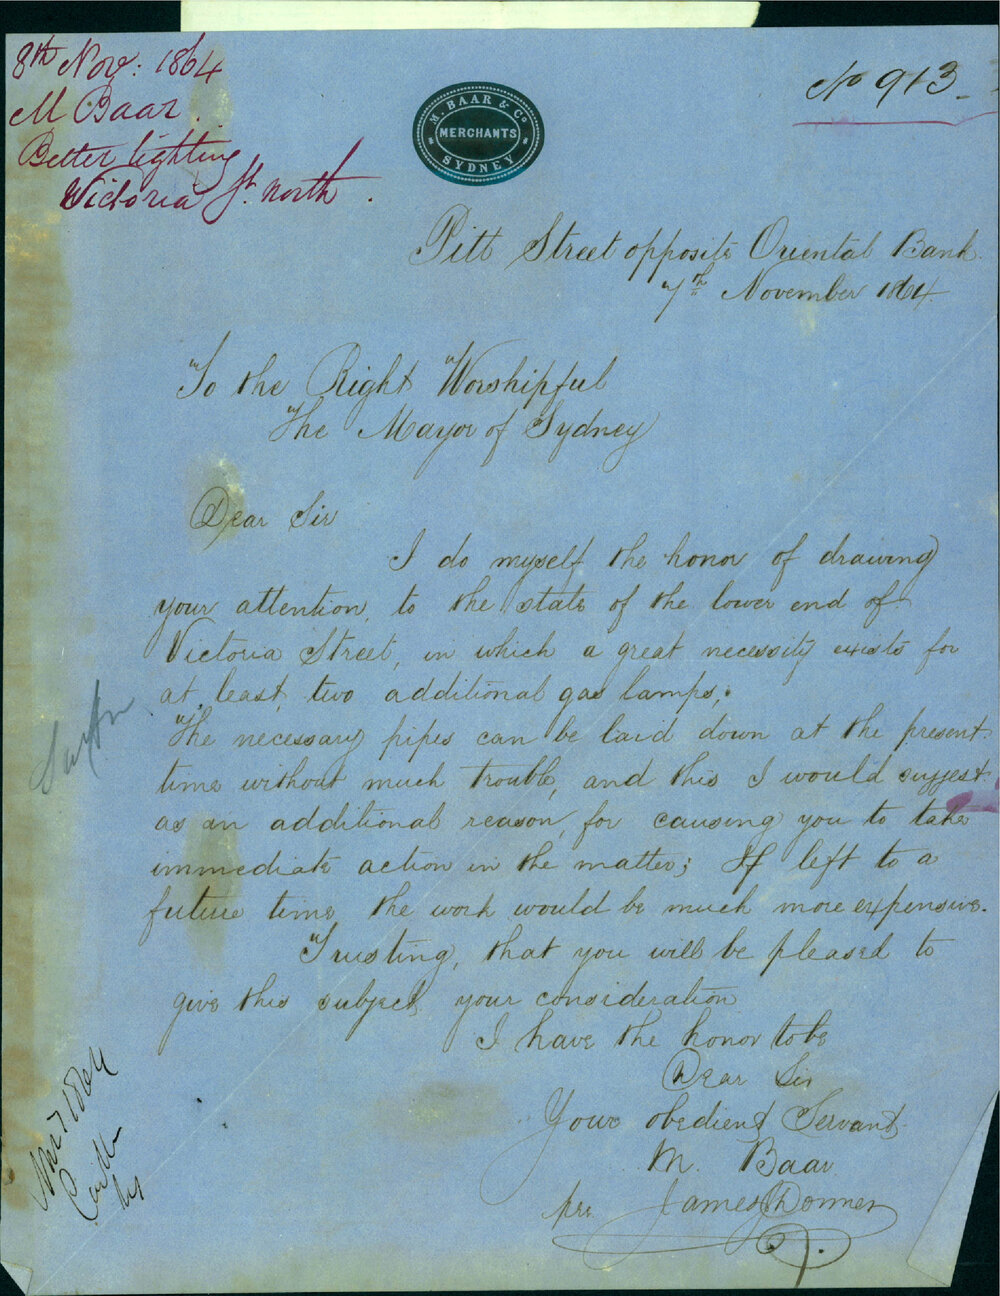 8th Nov: 1864
M Baar.
Better lighting
Victoria St. North.
No 913
M. BAAR & Co
MERCHANTS
SYDNEY
Pitt Street opposite Oriental Bank.
7th November 1864.
To the Right Worshipful
The Mayor of Sydney
Dear Sir
I do myself the honor of drawing
your attention, to the state of the lower end of
Victoria Street, in which a great necessity exists for
at least, two additional gas lamps;
The necessary pipes can be laid down at the present
time without much trouble, and this I would suggest
as an additional reason, for causing you to take
immediate action in the matter; If left to a
future time, the work would be much more expensive.
Trusting, that you will be pleased to
give this subject, your consideration
I have the honor to be
Dear Sir
Your obedient Servant
M. Baar
per. James